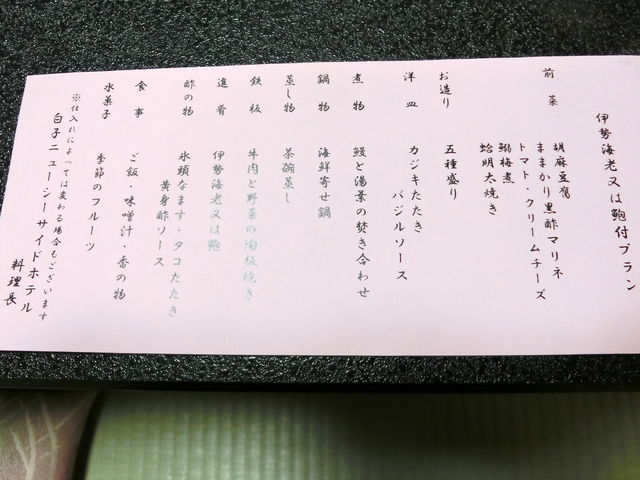 伊勢海老又は鮑付プラン
前菜　胡麻豆腐
ままかり黒酢マリネ
トマト・クリームチーズ
鰯梅煮
蛤明太焼き
お造り　五種盛り
洋皿　カジキたたき
バジルソース
煮物　鰻と湯葉の焚き合わせ
鍋物　海鮮寄せ鍋
蒸し物　茶碗蒸し
鉄板　牛肉と野菜の陶板焼き
進肴　伊勢海老又は鮑
酢の物　氷頭なます・タコたたき
黄身酢ソース
食事　ご飯・味噌汁・香の物
水菓子　季節のフルーツ
※仕入れによっては変わる場合もございます
白子ニューシーサイドホテル
料理長